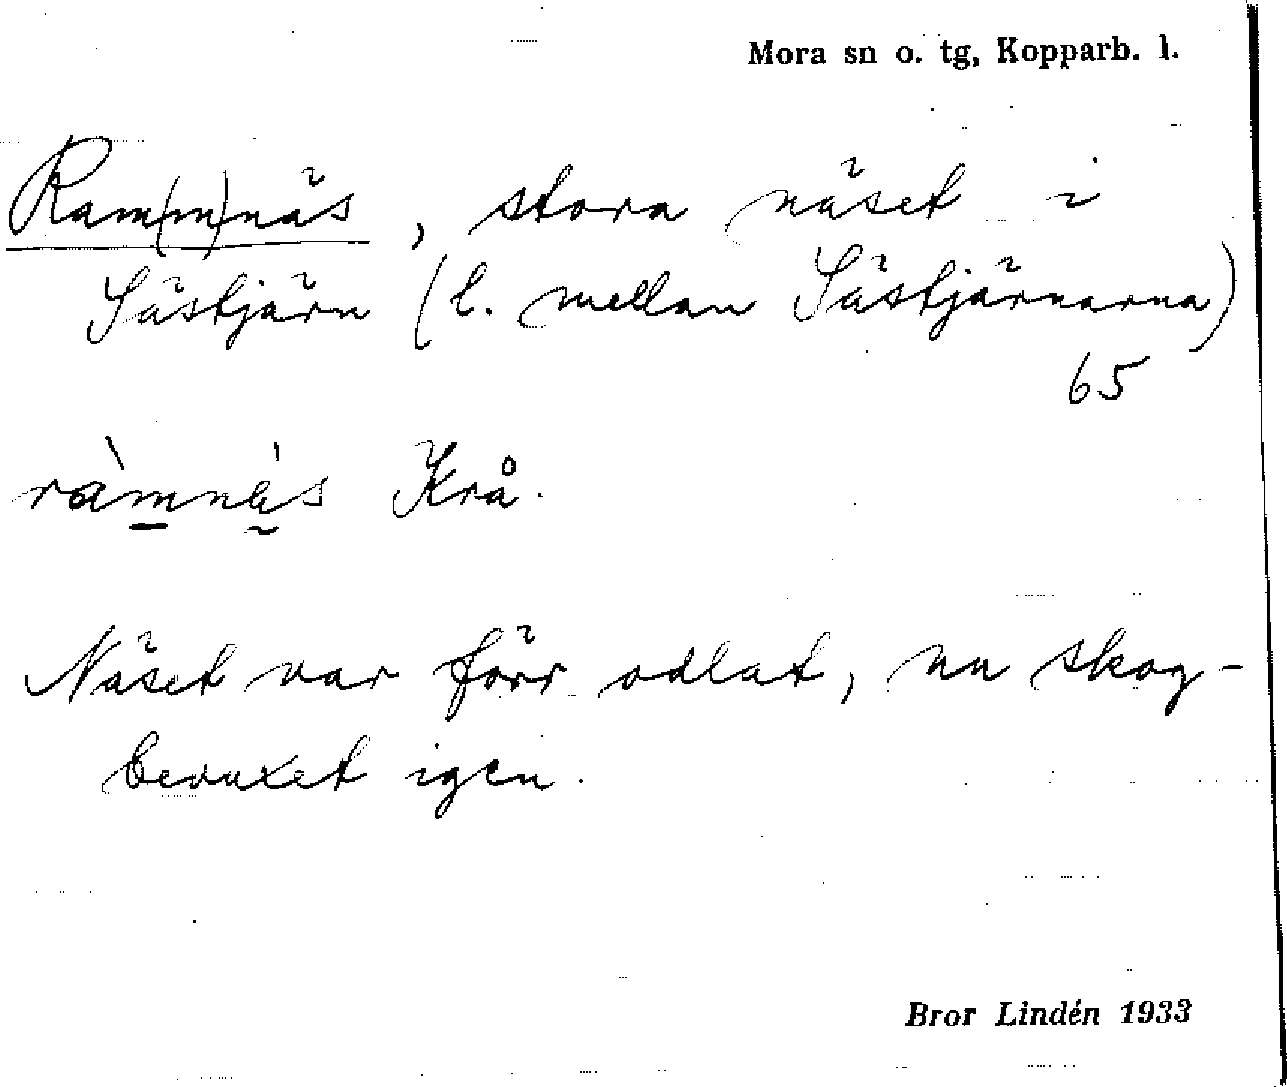 Mora sn o. tg, Kopparb. l.
Ram(m)näs, stora näset i
Sästjärn (l. mellan Sästjärnarna)
65
ràmnä́s Krå.
Näset var förr odlat, nu skog-
bevuxet igen.
Bror Lindén 1933